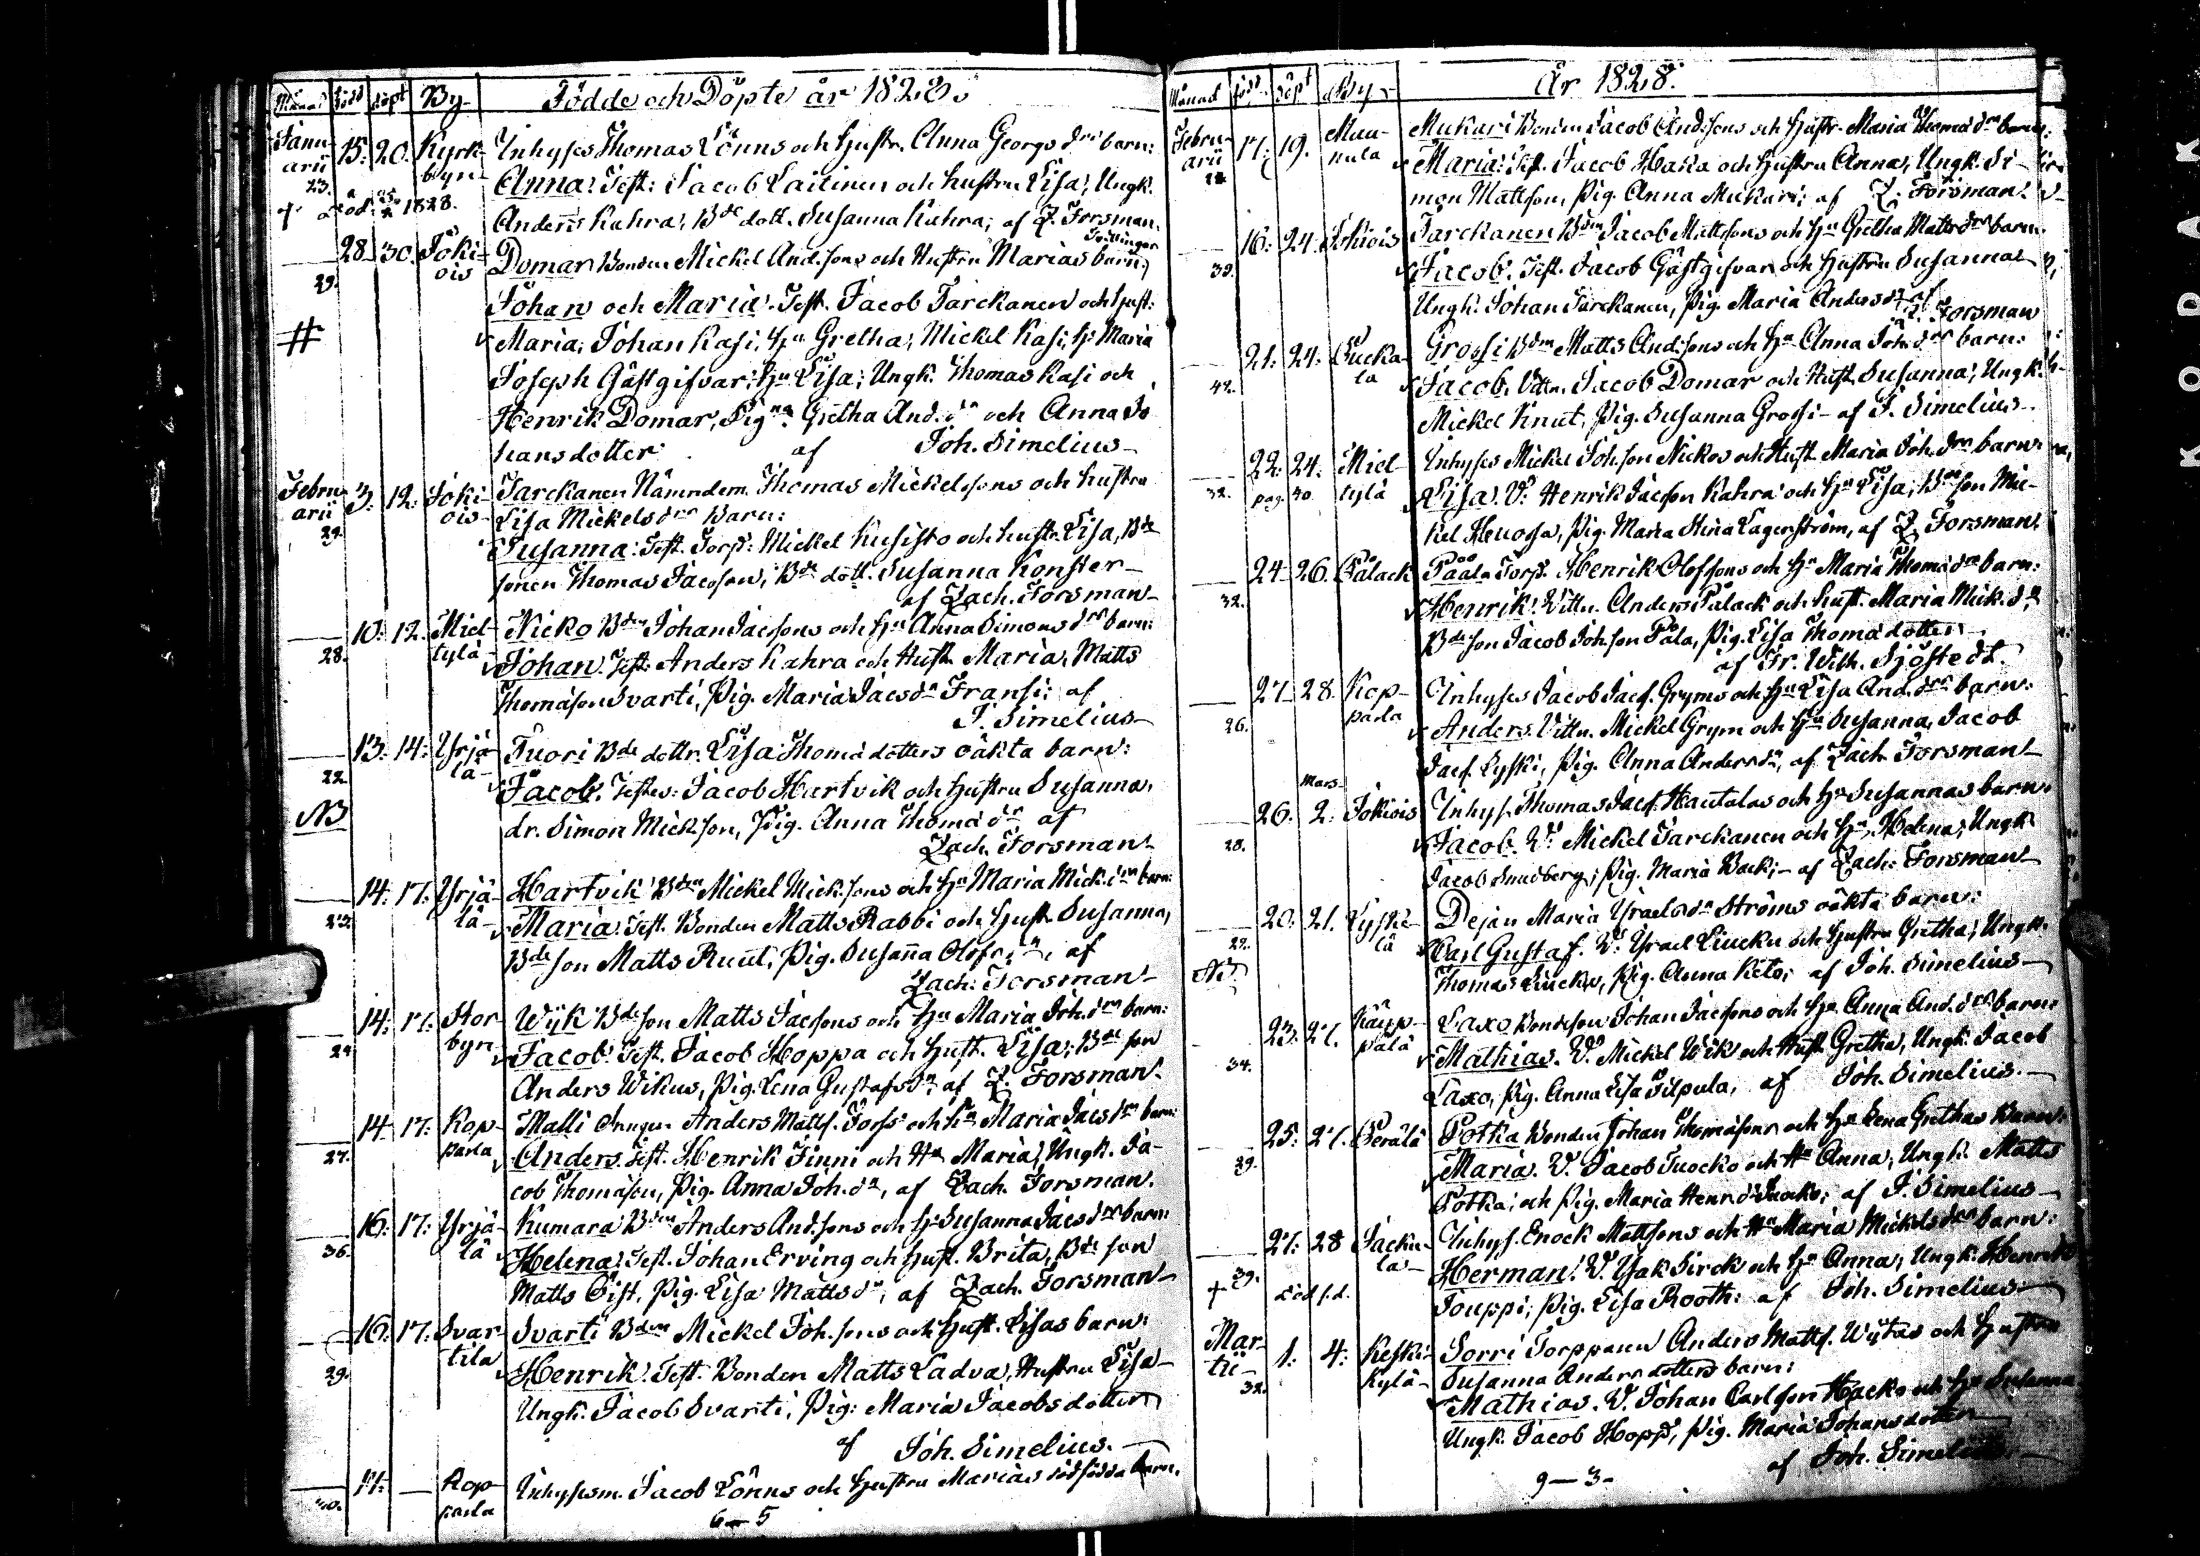 Månad född döpt By Födde och Döpte år 1828.
Janu- 15. 20. Kyrk- Inhyses Thomas Lönns och Hustr. Anna Georgs drs barn:
arii byn- Anna. Test: Jacob Laitinen och hustru Lisa, Ungk.
23.
† död 1828. Anders Kahra, Bde dott. Susanna Kahra; af Z. Forsman.
28 30. Joki- Domar Bonden Mickel And.sons och Hustru Marias barn: Tvillingar
29. ois Johan och Maria. Test. Jacob Tarckanen och Hust:
# Maria, Johan Kasi, Hu Gretha, Mickel Kasi, H: Maria
Joseph Gästgifvar, Hu Lisa; Ungk. Thomas Kasi och
Henrik Domar, Pigna Gretha And.dr och Anna Jo
hansdotter af Joh. Simelius
Febru- 3. 12. Joki- Tarckanen Nämndem. Thomas Mickelssons och hustru
arii ois Lisa Mickelsdrs Barn:
29. Susanna. Test. Torp: Mickel Kusisto och hustr. Lisa, Bde
sonen Thomas Jacobson, Bde dott. Susanna Konster
af Zach. Forsman
10. 12. Miel- Nicko Bden Johan Jacsons och Hu Anna Simons drs barn:
28. tylä Johan. Test: Anders Kahra och Hustr. Maria, Matts
Thomasson Svarti, Pig. Maria Jacsdr Fransi; af
J. Simelius
13. 14. Yrjä- Tuori Bde dottr. Lisa Thomä dotters oäkta barn:
22. lä- Jacob. Testes: Jacob Hartvik och hustru Susanna,
NB dr. Simon Mickson, Pig. Anna Thomä dr af
Zach. Forsman
14. 17. Yrjä- Hartvik Bden Mickel Mick.sons och Hu Maria Mick.drs barn:
lä- Maria. Test. Bonden Matts Rabbi och Hustr Susanna,
Bde son Matts Ruut, Pig. Susanna Olofsdr, af
Zach: Forsman
14. 17. Stor Wijk Bde son Matts Jacsons och Hu Maria Joh.drs barn:
24 byn Jacob. Test. Jacob Hoppa och Hust. Lisa; Bde son
Anders Wikus, Pig. Lena Gustafsdr af Z. Forsman
14. 17. Kop- Matti Anders Matts. Torss och Hu Maria Jacsdrs barn:
27. parla Anders. Test. Henrik Finni och Hu Maria, Ungk. Ja-
cob Thomasson, Pig. Anna Joh.dr, af Zach. Forsman.
16. 17. Yrjä- Kumara Bden Anders And.sons och Hu Susanna Jacsdrs barn:
36. lä Helena. Test. Johan Erving och Hust. Brita, Bde son
Matts Sist, Pig. Lisa Mattsdr, af Zach. Forsman
16. 17. Svar- Svarti Bden Mickel Joh.sons och Hust. Lisas barn:
29. tila Henrik. Test. Bonden Matts Ladva, Hustru Lisa
Ungk. Jacob Svarti, Pig: Maria Jacobsdotter
af Joh. Simelius.
17. — Kop- Inhysesm. Jacob Lönns och Hustru Marias dödfödda barn.
parla
6—5
Månad född döpt By År 1828.
Febru- 17. 19. Mau- Mukari Bonden Jacob And.sons och Hustr. Maria Thomä drs barn:
arii nula Maria. Test. Jacob Hasia och Hustru Anna, Ungk. Si-
mon Mattson, Pig. Anna Mukari; af Z. Forsman.
16. 24. Jokiois Tarckanen Bden Jacob Mattssons och Hu Gretha Matts drs barn:
39. Jacob. Test. Jacob Gästgifvar och Hustru Susanna
Ungk. Johan Tarckanen, Pig. Maria Andersdr af
Z. Forsman
21. 24. Sucka- Grossi Bden Matts And.sons och Hu Anna Joh.drs barn:
42. la Jacob. Vittn. Jacob Domar och Hustr. Susanna, Ungk.
Mickel Knut, Pig. Susanna Grossi af J. Simelius
22. 24. Miel- Inhyses Mickel Johsson Nickos och Hust. Maria Joh.drs barn:
32. pag. 30. tylä Lisa. V. Henrik Jacson Kahra och Hu Lisa; Bde son Mic-
kel Heuossa, Pig. Maria Stina Lagerström, af Z. Forsman.
24 26. Pålack Pååla Torp. Henrik Olofssons och Hu Maria Thomä drs barn:
32. Henrik. Vittn. Anders Pålack och hust. Maria Mick.dr
Bde son Jacob Johsson Påla, Pig. Lisa Thomä dotter
af Fr. Wilh. Sjöstedt.
27 28. Kop- Inhyses Jacob Jacs. Gryms och Hu Lisa And.drs barn:
26. parla Anders. Vittn. Mickel Grym och Hu Susanna, Jacob
Jacs. Lyski, Pig. Anna Andersdr, af Zach. Forsman
Mars.
26. 2. Jokiois Inhys. Thomas Jacs. Hautalas och Hu Susannas barn:
28. Jacob. V. Mickel Tarckanen och Hu Helena; Ungk.
Jacob Sundberg, Pig. Maria Back; af Zach: Forsman
20. 21. Lyski- Dejan Maria Ysraelsdr Ströms oäkta barn:
22. lä Carl Gustaf. V. Ysrael Liucku och Hustru Gretha; Ungk.
NB Thomas Liucku, Pig. Anna Keto; af Joh. Simelius
23. 27. Käyp- Laxo Bondeson Johan Jacsons och Hu Anna And.drs barn:
34. pälä Mathias. V. Mickel Wik och Hust Gretha, Ungk. Jacob
Laxo, Pig. Anna Lisa Silpula, af Joh. Simelius.
25. 27. Perälä Potka Bonden Johan Thomäsons och Hu Lena Grethas Barn:
29. Maria. V. Jacob Tuocko och Hu Anna, Ungk. Matts
Potka, och Pig. Maria Henr.dr Tuocko; af J. Simelius
27. 28 Jacku- Inhys. Enock Mattsons och Hu Maria Mickelsdrs barn:
† 39. la Herman. V. Ysak Sirck och Hu Anna, Ungk. Henrik
död s.d. Jouppi, Pig. Lisa Rooth: af Joh. Simelius
Mar- 1. 4. Keski- Sorri Torpparen Anders Matts. Wijtas och Hustru
tii 32. kylä Susanna Andersdotters barn:
Mathias. V. Johan Carlsson Hacko och Hu Susanna
Ungk. Jacob Hopp, Pig. Maria Johansdotter
af Joh. Simelius
9—3-
KODAK